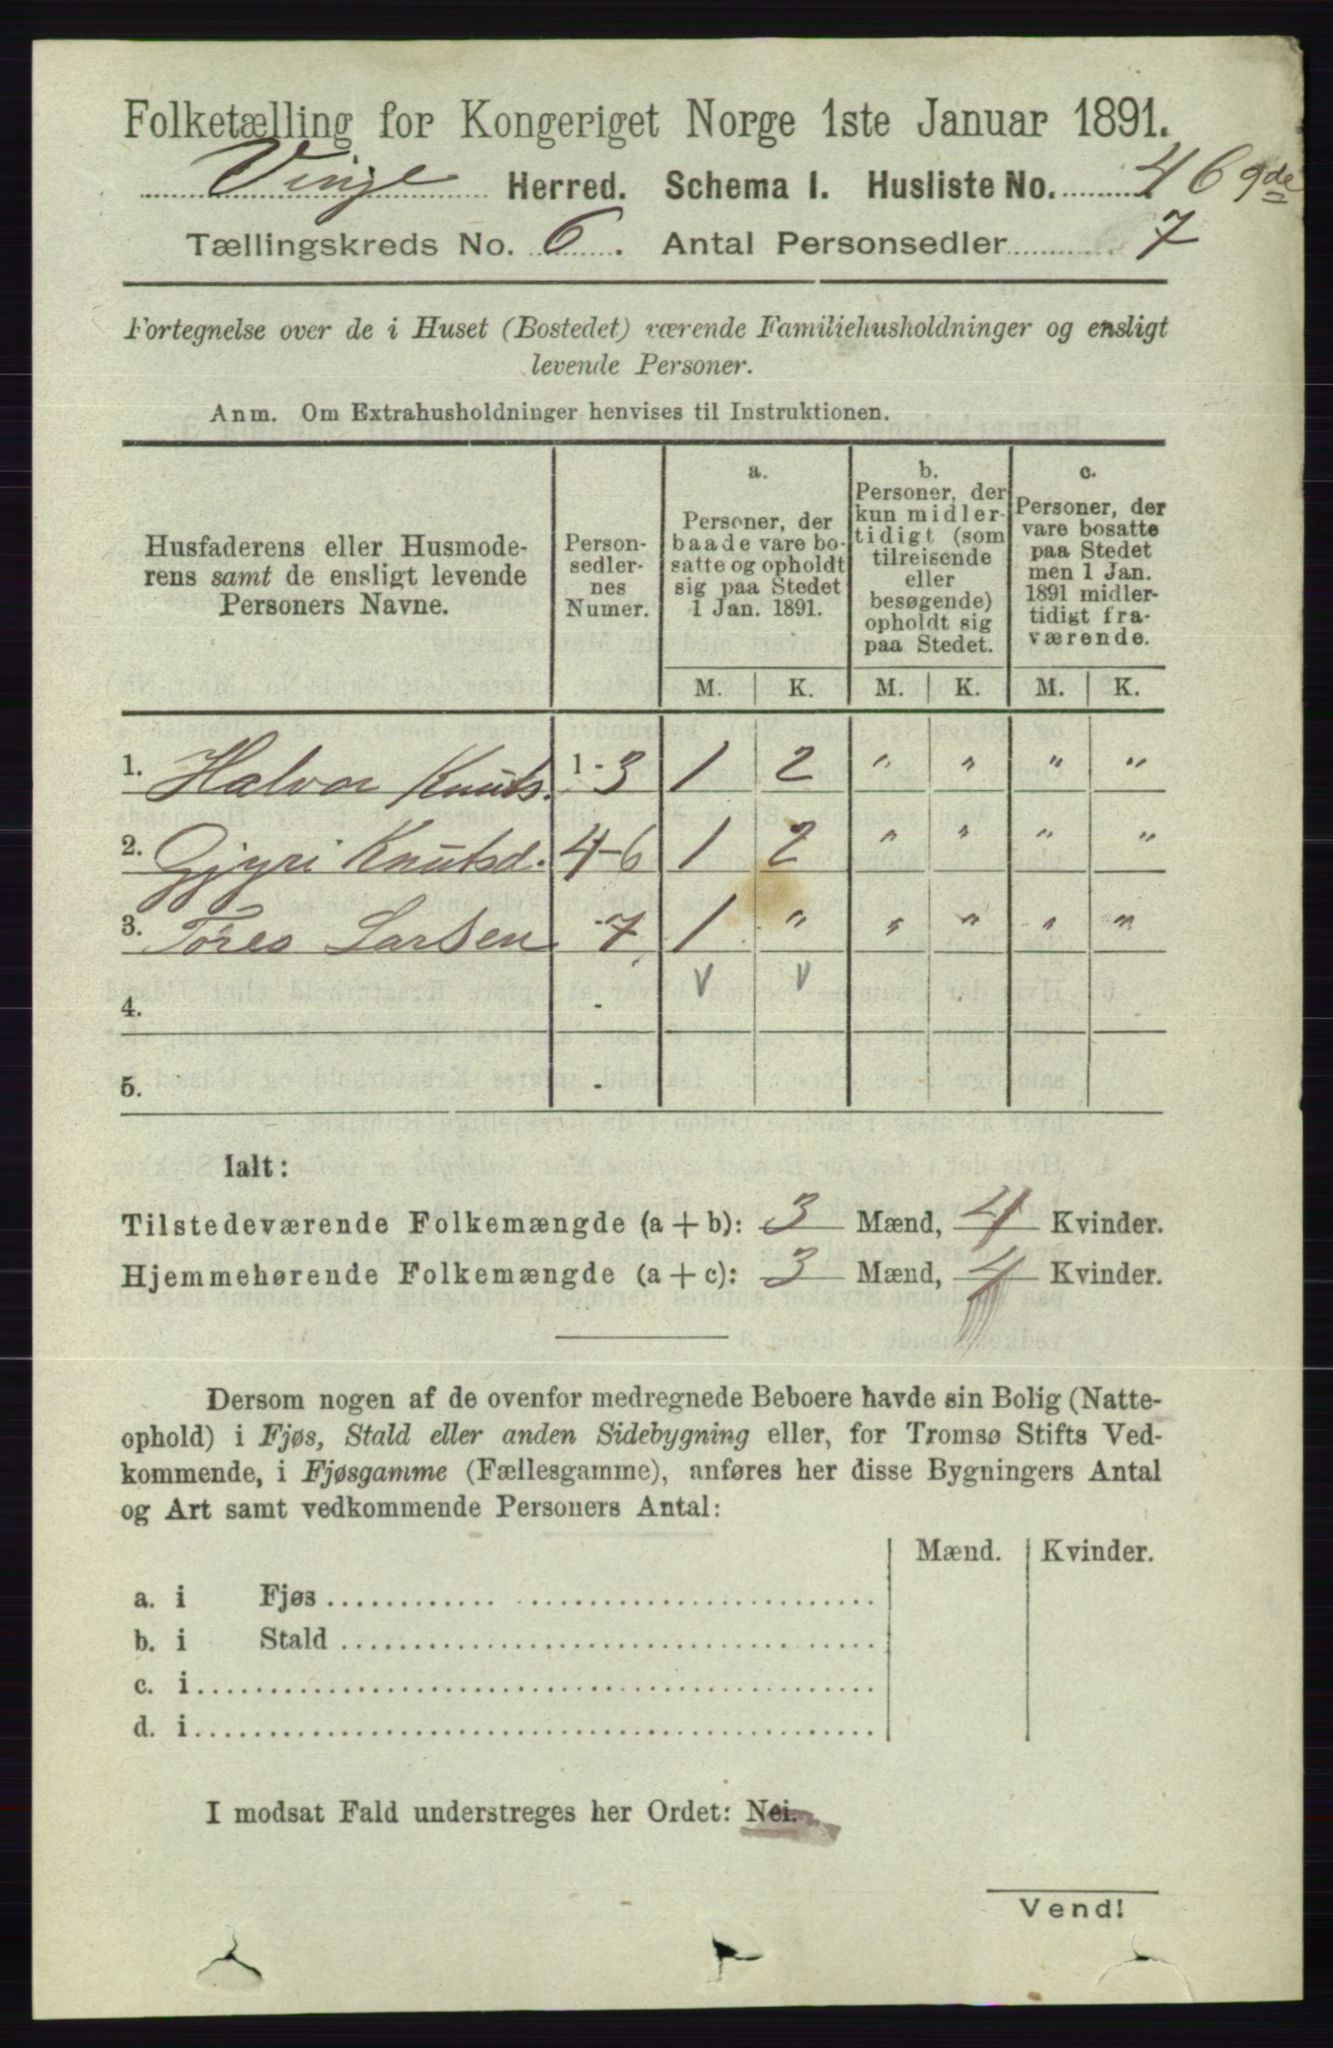 Folketælling for Kongeriget Norge 1ste Januar 1891.
Vinje Herred. Schema I. Husliste No. 46 gde
Tællingskreds No. 6. Antal Personsedler 7
Fortegnelse over de i Huset (Bostedet) værende Familiehusholdninger og ensligt
levende Personer.
Anm. Om Extrahusholdninger henvises til Instruktionen.
Husfaderens eller Husmode-
rens samt de ensligt levende
Personers Navne.
Person-
sedler-
nes
Numer.
a.
Personer, der
baade vare bo-
satte og opholdt
sig paa Stedet
1 Jan. 1891.
b.
Personer, der
kun midler-
tidigt (som
tilreisende
eller
besøgende)
opholdt sig
paa Stedet.
c.
Personer, der
vare bosatte
paa Stedet
men 1 Jan.
1891 midler-
tidigt fra-
værende.
M. K. M. K. M. K.
1. Halvor Knuts. 1-3 1 2 " " " "
2. Gjyri Knutsd. 4-6 1 2 " " " "
3. Tores Larsen -7 1 " " " " "
4. - V V
5. -
Ialt:
Tilstedeværende Folkemængde (a + b): 3 Mænd, 4 Kvinder.
Hjemmehørende Folkemængde (a + c): 3 Mænd, 4 Kvinder.
Dersom nogen af de ovenfor medregnede Beboere havde sin Bolig (Natte-
ophold) i Fjøs, Stald eller anden Sidebygning eller, for Tromsø Stifts Ved-
kommende, i Fjøsgamme (Fællesgamme), anføres her disse Bygningers Antal
og Art samt vedkommende Personers Antal:
Mænd. Kvinder.
a. i Fjøs
b. i Stald
c. i
d. i
I modsat Fald understreges her Ordet: Nei.
Vend!